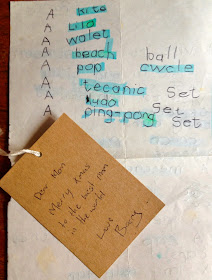 A kite
A Lilo
A walet
A beach ball
A pop cwcle
A tecania Set
A Ludo Set
A ping-pong Set
Dear Mom
Merry Xmas
to the best mom
in the world
Love